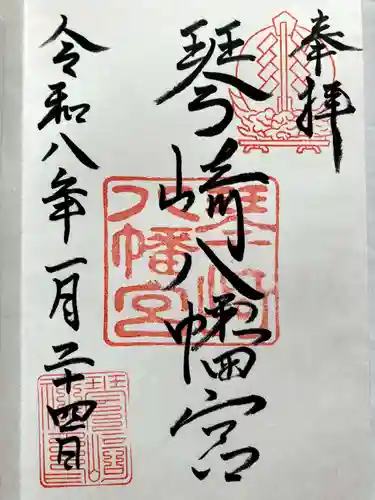 奉拝
琴崎八幡宮
令和八年一月二十四日
琴崎八幡宮